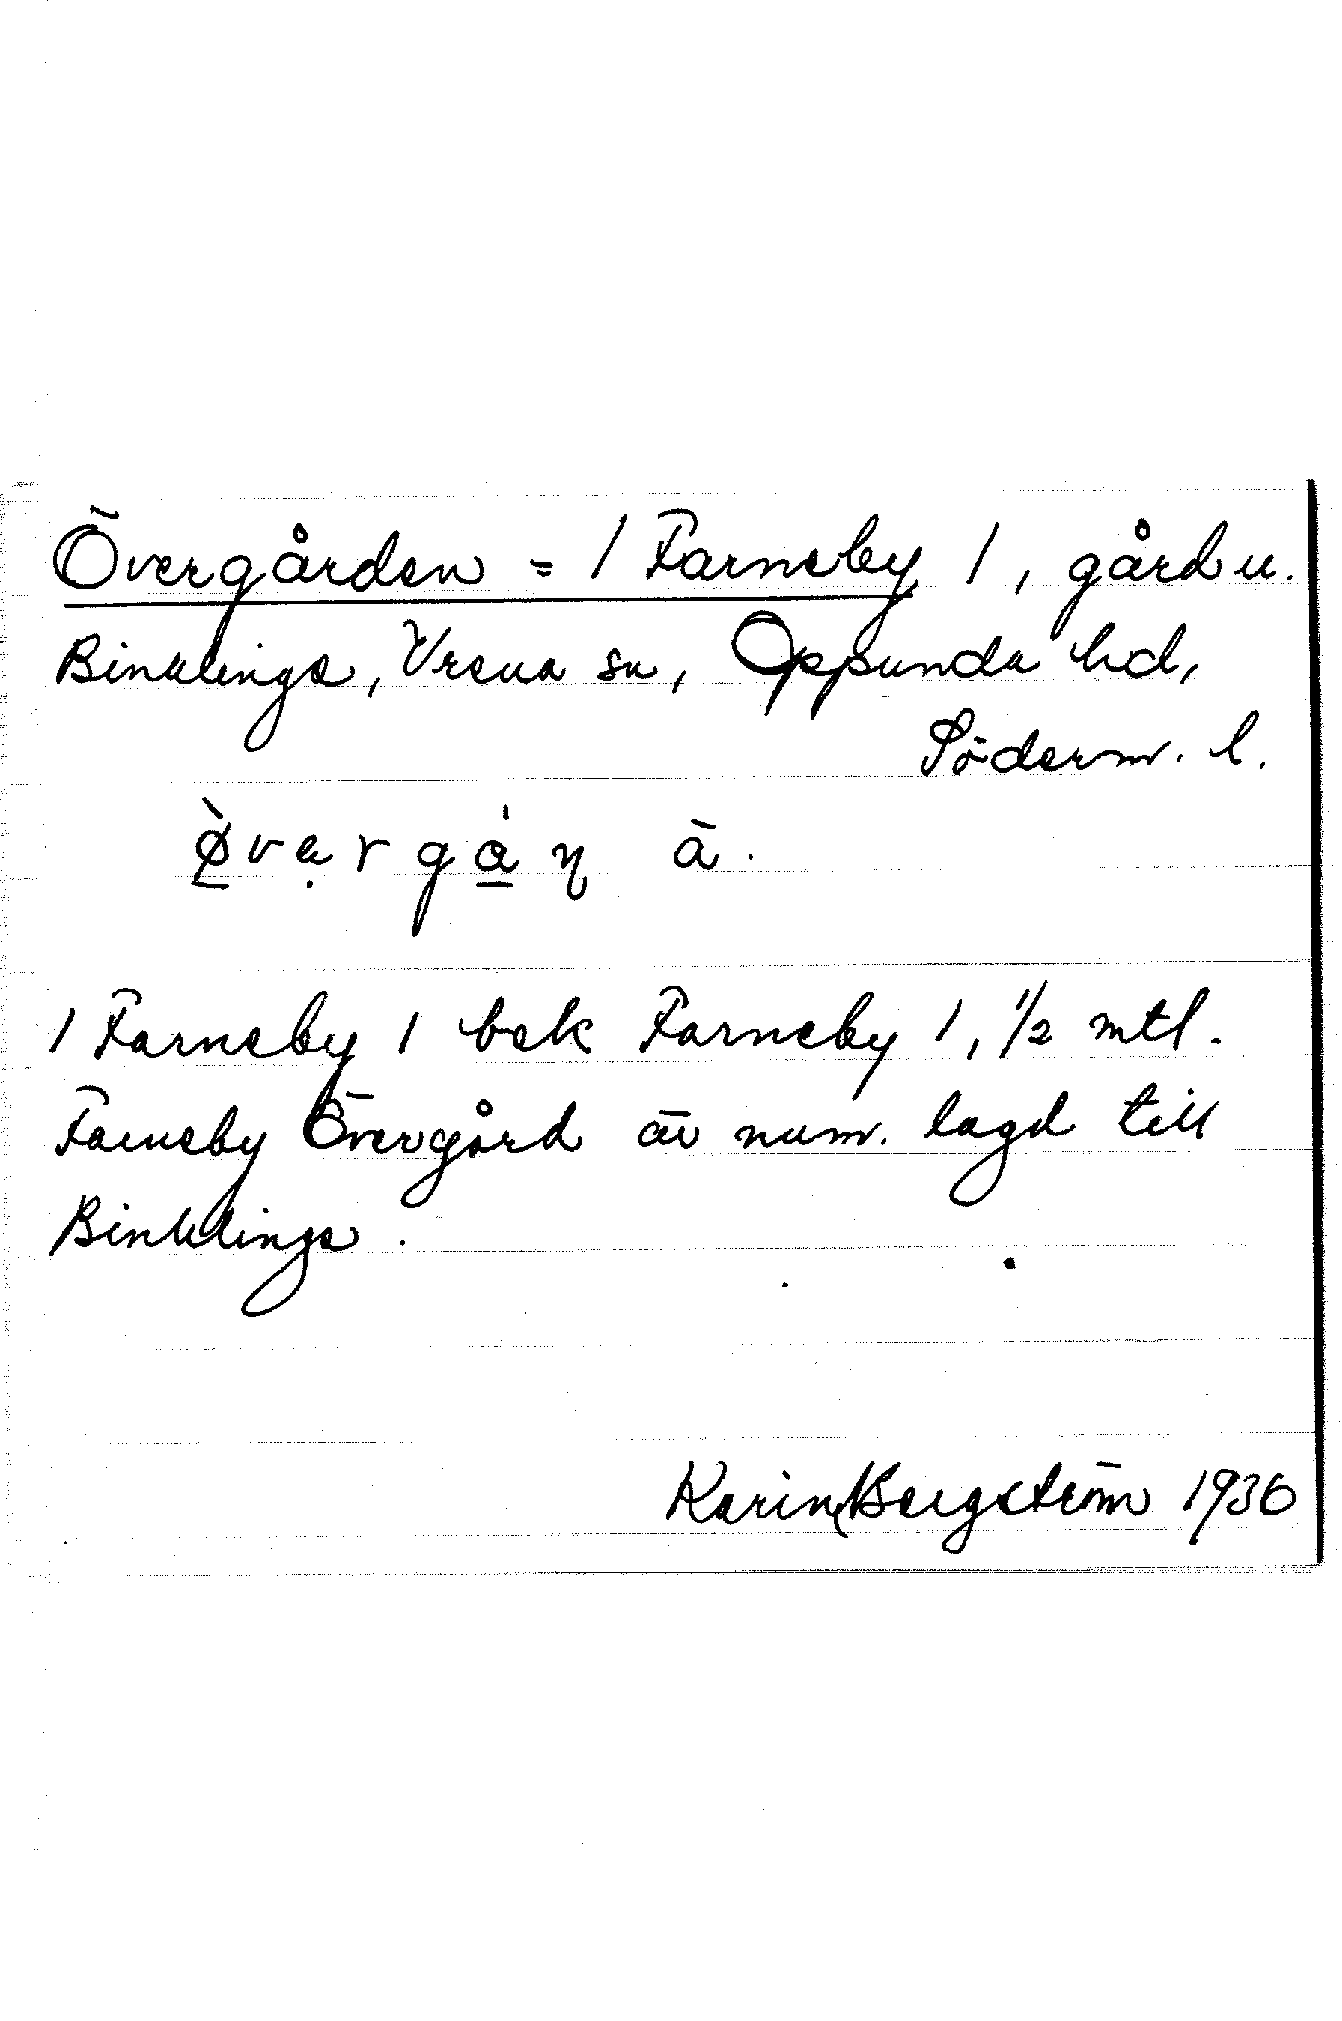 Övergården = / Farneby /, gård u.
Binklinge, Vrena sn, Oppunda hd,
Söderm. l.
/ Farneby / bek Farneby 1, 1/2 mtl.
Farneby Övergård är num. lagd till
Binklinge.
Karin Bergström 1936